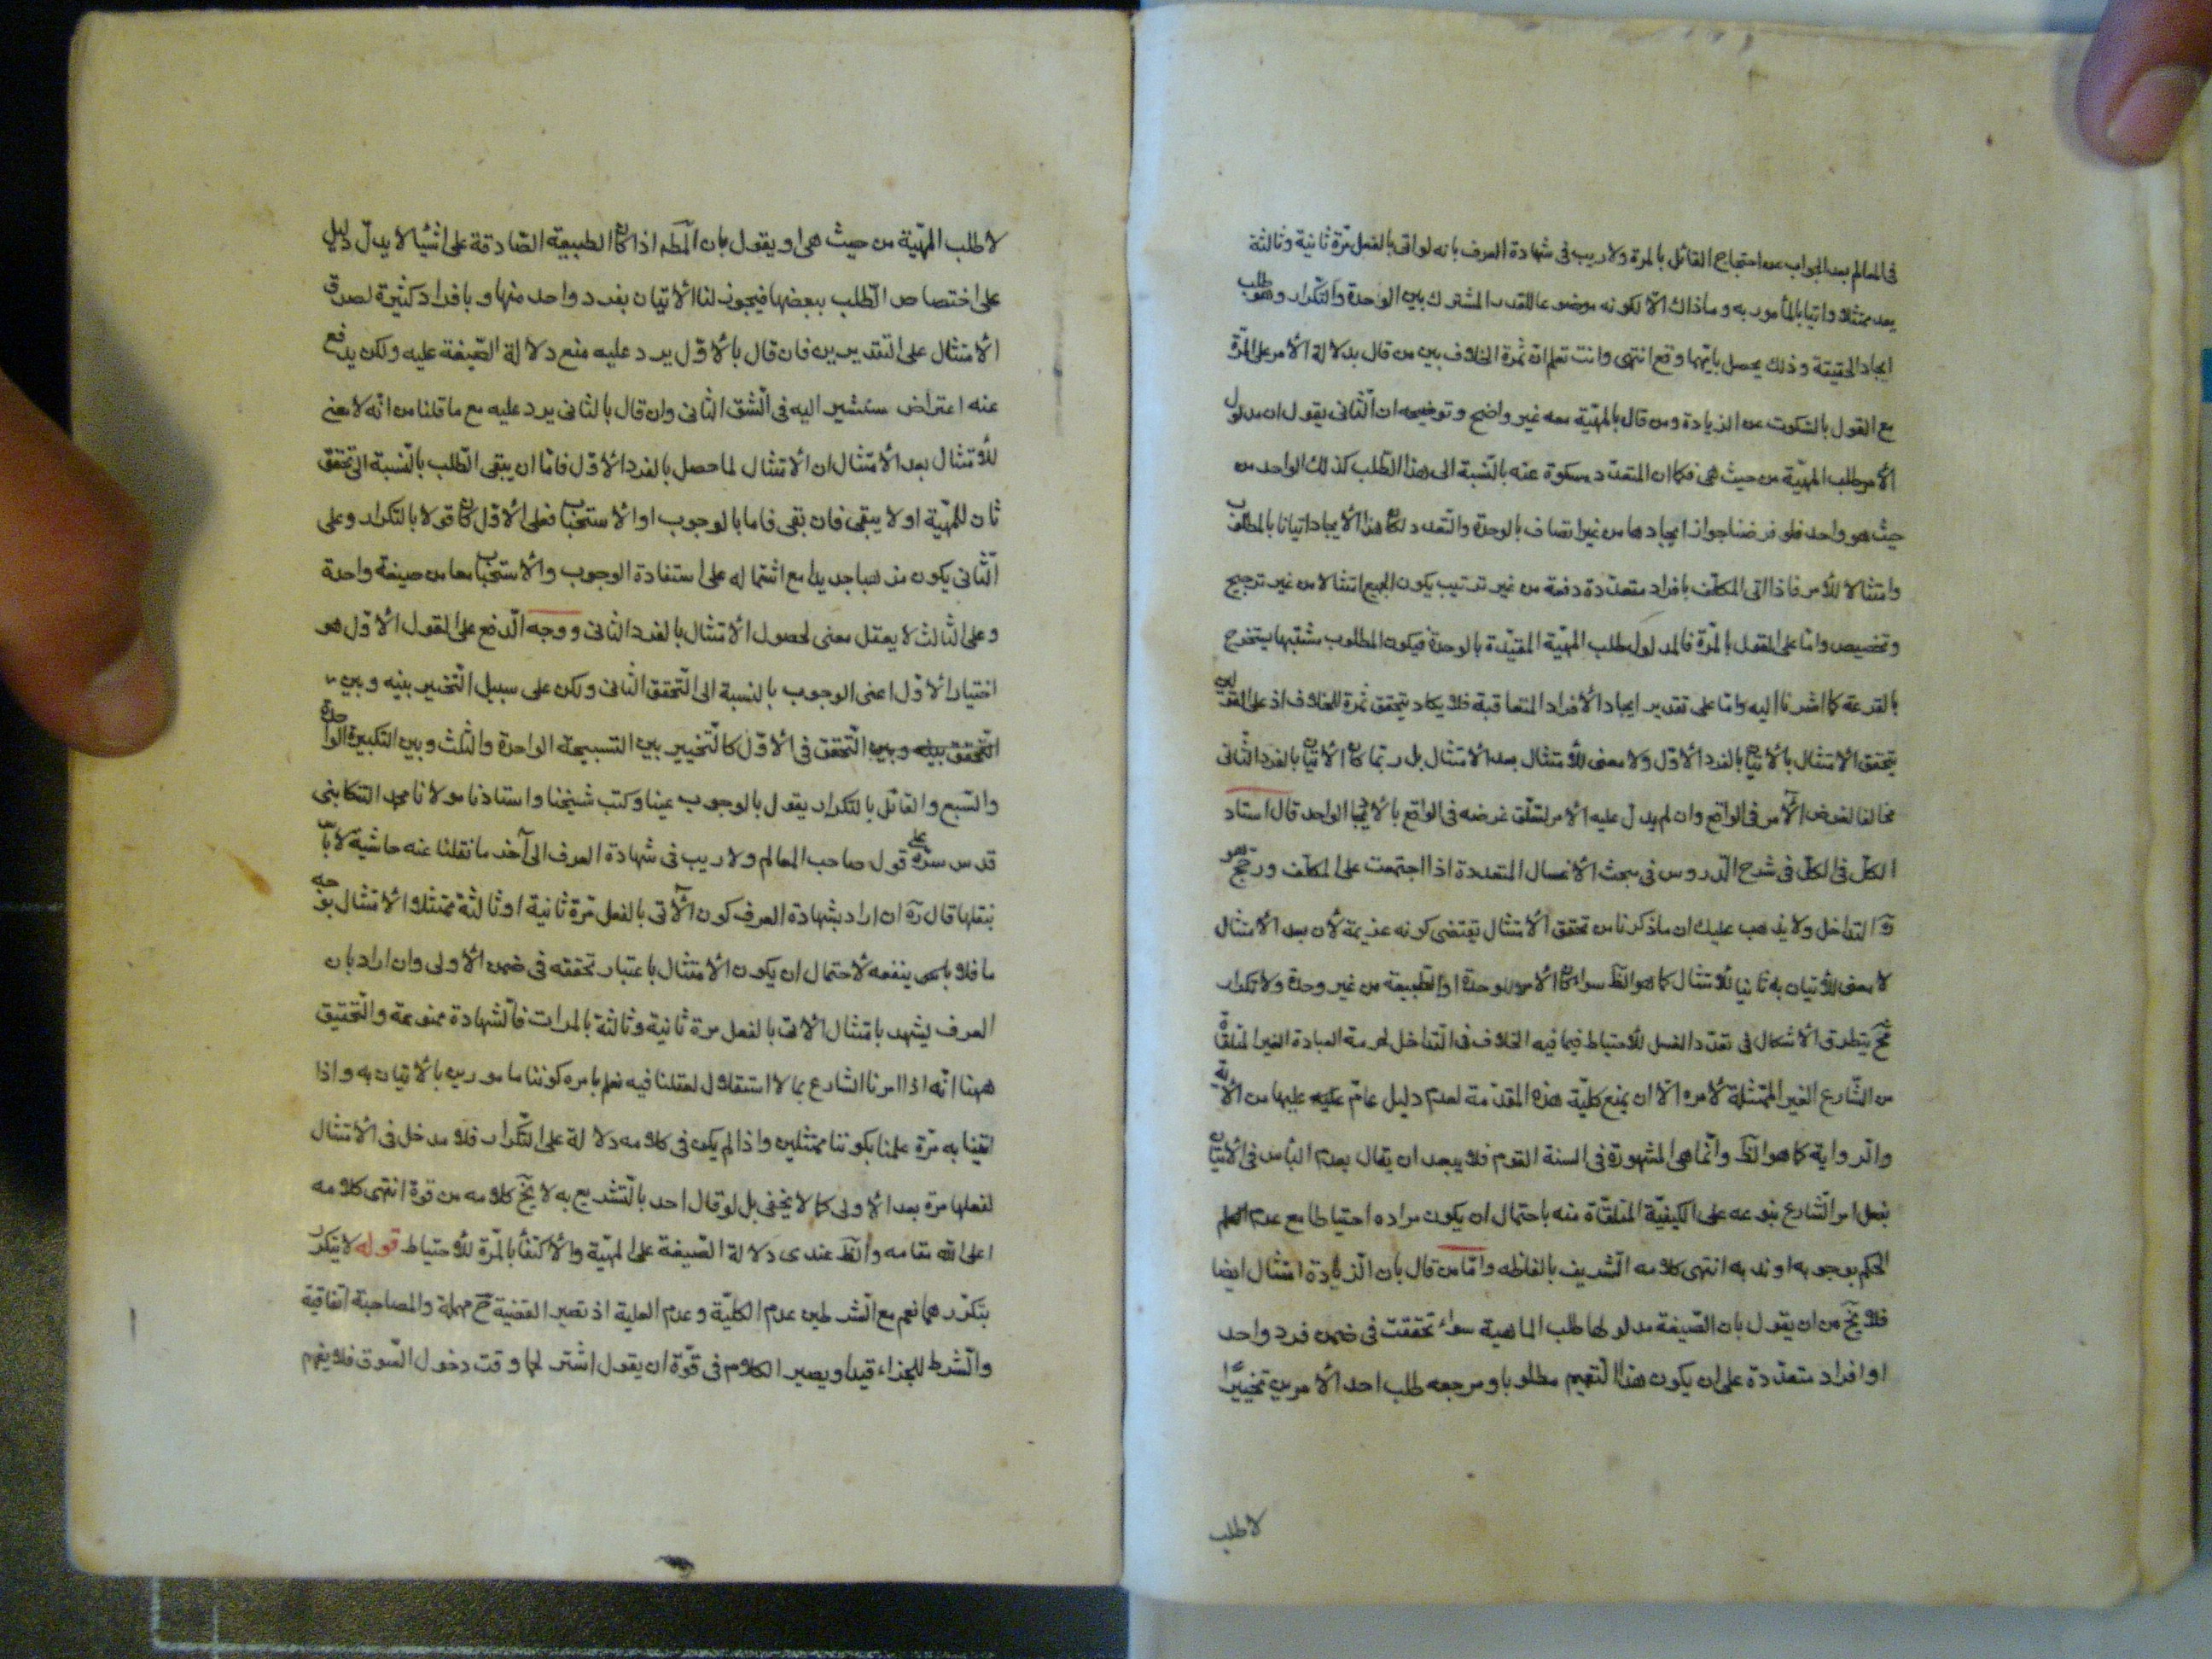 فى المعالم بعد الجواب عن احتجاج القائل بالمرة ولا ريب فى شهادة العرف بانه لو اتى بالفعل مرّة ثانية وثالثة
يعد ممتثلا واتيا بالمأمور به وما ذاك الّا لكونه موضوعا للقدر المشترك بين الوحدة والتكرار وهو طلب
ايجاد الحقيقة وذلك يحصل بايّهما وقع انتهى وانت تعلم انّ ثمرة الخلاف بين من قال بدلالة الأمر على المرّة
مع القول بالسّكوت عن الزيادة ومن قال بالمهيّة معه غير واضح وتوضيحه ان الثّانى يقول ان مدلول
الأمر طلب المهيّة من حيث هى فكما ان المتعدّد مسكوة عنه بالنّسبة الى هذا الطّلب كذلك الواحد من
حيث هو واحد فلو فرضنا جواز ايجادها من غير اتصاف بالوحدة والتّعدد لكان هذا الايجاد اتيانا بالمطلوب
وامتثالا للأمر فاذا اتى المكلّف بافراد متعدّدة دفعة من غير ترتيب يكون الجميع امتثالا من غير ترجيح
وتخصيص وامّا على القول بالمرّة فالمدلول طلب المهيّة المقيّدة بالوحدة فيكون المطلوب مشتبها يستخرج
بالقرعة كما اشرنا اليه وامّا على تقدير ايجاد الأفراد المتعاقبة فلا يكاد يتحقق ثمرة للخلاف اذ على القولين
يتحقق الامتثال بالاتيان بالفرد الأوّل ولا معنى للأمتثال بعد الامتثال بل ربّما كان الاتيان بالفرد الثّانى
مخالفا لغرض الآمر فى الواقع وان لم يدلّ عليه الأمر لتعلّق غرضه فى الواقع بالايجاد الواحد قال استاد
الكلّ فى الكلّ فى شرح الدّروس فى مبحث الأغسال المتعددة اذا اجتمعت على المكلّف ورجّح هو
ره التداخل ولا يذهب عليك ان ما ذكرنا من تحقق الامتثال يقتضى كونه عزيمة لأن بعد الامتثال
لا معنى للأتيان به ثانيا للأمتثال كما هو الظّ سواء كان الأمر للوحدة او للطّبيعة من غير وحدة ولا تكرار
فح يتطرق الاشكال فى تعدّد الغسل للأحتياط فيما فيه الخلاف فى التّداخل لحرمة العبادة الغير المتلقّاة
من الشّارع الغير الممتثلة لأمره الّا ان يمنع كليّة هذه المقدّمة لعدم دليل عامّ عليها من الآية
والرواية كما هو الظّ وانّما هى المشهورة فى السنة القوم فلا يبعد ان يقال بعدم البأس فى الأتيان
بفعل امر الشّارع بنوعه على الكيفيّة المتلقّاة منه باحتمال ان يكون مراده احتياطا مع عدم العلم
الحكم بوجوبه او ندبه انتهى كلامه الشّريف بالفاظه وامّا من قال بان الزّيادة امتثال ايضا
فلا يخ من ان يقول بان الصّيغة مدلولها طلب الماهية سواء تحققت فى ضمن فرد واحد
او افراد متعدّدة على ان يكون هذا التّعميم مطلوبا ومرجعه طلب احد الأمرين تخييرًا
لا طلب
لا طلب المهيّة من حيث هى او يقول بان المط اذا كان الطبيعة الصّادقة على اشيا لا يدلّ دليل
على اختصاص الطّلب ببعضها فيجوز لنا الأتيان بفرد واحد منها و بافراد كثيرة لصدق
الأمتثال على التقديرين فان قال بالأوّل يرد عليه منع دلالة الصّيغة عليه ولكن يدفع
عنه اعتراض سنشير اليه فى الشّق الثّانى وان قال بالثانى يرد عليه مع ما قلنا من انّه لا معنى
للأمتثال بعد الأمتثال ان الامتثال لما حصل بالفرد الأوّل فامّا ان يبقى الطّلب بالنّسبة الى تحقق
ثان للمهيّة او لا يبقى فان بقى فاما بالوجوب او الأستحباب فعلى الأوّل كان قولا بالتكرار وعلى
الثّانى يكون مذهبا جديدا مع اشتماله على استفادة الوجوب والأستحباب معا من صيغة واحدة
وعلى الثّالث لا يعقل معنى لحصول الامتثال بالفرد الثانى ووجه الدّفع على القول الأوّل هو
اختيار الأوّل اعنى الوجوب بالنسبة الى التّحقق الثّانى ولكن على سبيل التّخيير بينه وبين
التّحقق فى الأوّل كالتّخيير بين التسبيحة الواحدة والثلث وبين التكبيرة الواحدة
والسّبع والقائل بالتكرار يقول بالوجوب عينا وكتب شيخنا واستاذنا مولانا محمد التنكابنى
قدس سرّه على قول صاحب المعالم ولا ريب فى شهادة العرف الى آخر ما نقلنا عنه حاشية لا بأس
بنقلها قال ره ان اراد بشهادة العرف كون الآتى بالفعل مرّة ثانية او ثالثة ممتثلا الأمتثال بوجه
ما فلا ينفعه لاحتمال ان يكون الأمتثال باعتبار تحققه فى ضمن الأولى وان اراد بان
العرف يشهد بامتثال الآتى بالفعل مرة ثانية وثالثة بالمرات فالشّهادة ممنوعة والتّحقيق
ههنا انّه اذا امرنا الشارع بما لا استقلال لعقلنا فيه نعلم بامره كوننا مامورين بالأتيان به واذا
اتينا به مرّة علمنا بكوننا ممتثلين واذا لم يكن فى كلامه دلالة على التّكرار فلا مدخل فى الامتثال
لفعلها مرة بعد الأولى كما لا يخفى بل لو قال احد بالتّشريع به لا يخ كلامه من قوة انتهى كلامه
اعلى الله مقامه والظّ عندى دلالة الصّيغة على المهيّة والأكتفأ بالمرّة للأحتياط قوله لا يتكرر
بتكرّرهما نعم مع الشّرطين عدم الكليّة وعدم العلية اذ تصير القضية ح مهملة والمصاحبة اتفاقية
والشّرط للجزاء قيدا ويصير الكلام فى قوّة ان يقول اشتر لحما وقت دخول السّوق فلا يفهم